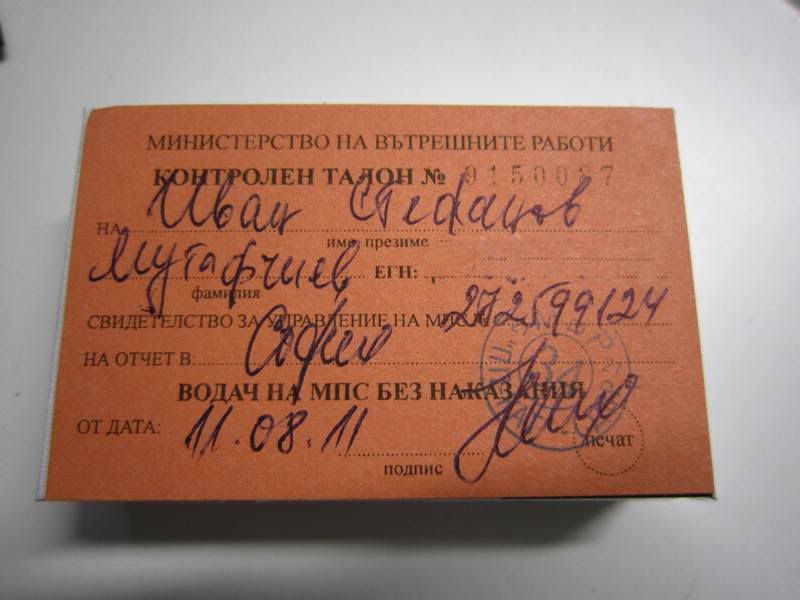 МИНИСТЕРСТВО НА ВЪТРЕШНИТЕ РАБОТИ
КОНТРОЛЕН ТАЛОН № 9150087
НА Иван Стефанов
име, презиме
Мутафчиев ЕГН:
фамилия
СВИДЕТЕЛСТВО ЗА УПРАВЛЕНИЕ НА МПС № 272599124
НА ОТЧЕТ В: София
ВОДАЧ НА МПС БЕЗ НАКАЗАНИЯ
ОТ ДАТА: 11.08.11
подпис
печат